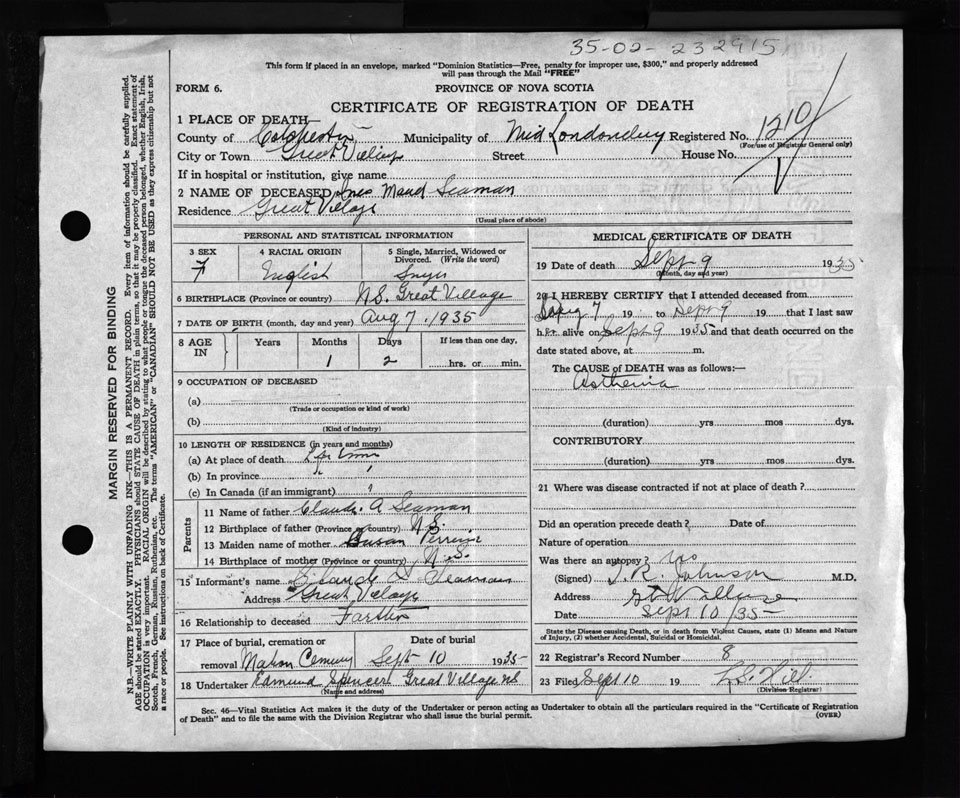 35-02-232915
This form if placed in an envelope, marked "Dominion Statistics—Free, penalty for improper use, $300," and properly addressed
will pass through the Mail "FREE"
FORM 6.
PROVINCE OF NOVA SCOTIA
CERTIFICATE OF REGISTRATION OF DEATH
1 PLACE OF DEATH
County of Colchester Municipality of Mid Londonderry Registered No. 1210
(For use of Registrar General only)
City or Town Great Village Street House No.
If in hospital or institution, give name
2 NAME OF DECEASED Ines Maud Seaman
Residence Great Village
(Usual place of abode)
PERSONAL AND STATISTICAL INFORMATION
3 SEX 4 RACIAL ORIGIN 5 Single, Married, Widowed or
Divorced. (Write the word)
F English
6 BIRTHPLACE (Province or country) N.S. Great Village
7 DATE OF BIRTH (month, day and year) Aug 7. 1935
8 AGE IN Years Months Days If less than one day,
1 2 hrs. or min.
9 OCCUPATION OF DECEASED
(a)
(Trade or occupation or kind of work)
(b)
(Kind of industry)
10 LENGTH OF RESIDENCE (in years and months)
(a) At place of death
(b) In province " "
(c) In Canada (if an immigrant)
Parents
11 Name of father Claude. A Seaman
12 Birthplace of father (Province or country) N.S.
13 Maiden name of mother Susan
14 Birthplace of mother (Province or country) N.S.
15 Informant's name Claude A Seaman
Address Great Village
16 Relationship to deceased Farther
17 Place of burial, cremation or Date of burial
removal Mahon Cemetery Sept 10 1935
18 Undertaker Edmund Spencer Great Village NS
(Name and address)
MEDICAL CERTIFICATE OF DEATH
19 Date of death Sept 9 1935
(Month, day and year)
20 I HEREBY CERTIFY that I attended deceased from
Aug 7 19 to Sept 9 19 that I last saw
her alive on Sept 9 1935 and that death occurred on the
date stated above, at m.
The CAUSE OF DEATH was as follows:—
Asthenia
(duration) yrs mos dys.
CONTRIBUTORY
(duration) yrs. mos. dys.
21 Where was disease contracted if not at place of death?
Did an operation precede death? Date of
Nature of operation
Was there an autopsy? No
(Signed) T.R. Johnson M.D.
Address Gt. Village
Date Sept 10/35
State the Disease causing Death, or in death from Violent Causes, state (1) Means and Nature
of Injury, (2) whether Accidental, Suicidal or Homicidal.
22 Registrar's Record Number 8
23 Filed Sept 10 19 L.B. Hill
(Division Registrar)
Sec. 46—Vital Statistics Act makes it the duty of the Undertaker or person acting as Undertaker to obtain all the particulars required in the "Certificate of Registration
of Death" and to file the same with the Division Registrar who shall issue the burial permit.
(OVER)
MARGIN RESERVED FOR BINDING
N.B.—WRITE PLAINLY WITH UNFADING INK—THIS IS A PERMANENT RECORD. Every item of information should be carefully supplied.
AGE should be stated EXACTLY. PHYSICIANS should STATE CAUSE OF DEATH in plain terms, so that it may be properly classified. Exact statement of
OCCUPATION is very important. RACIAL ORIGIN will be described by stating to what people or tongue the deceased person belonged, whether English, Irish,
Scotch, French, German, Russian, Ruthenian, etc. The terms "AMERICAN" or "CANADIAN" SHOULD NOT BE USED as they express citizenship but not
a race or people. See instructions on back of Certificate.